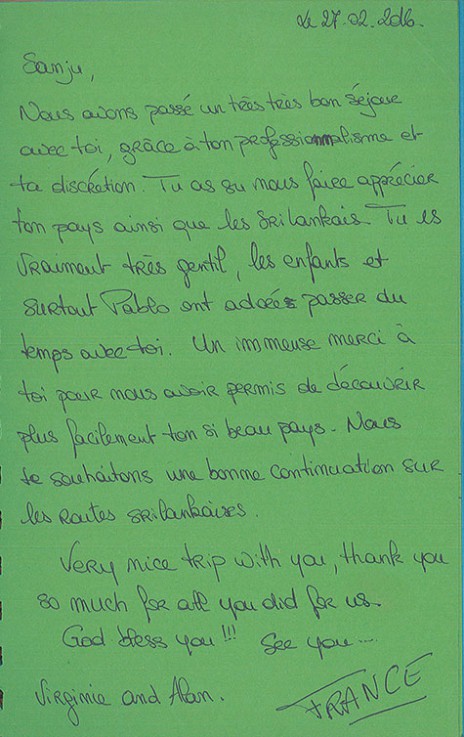 Le 27.02.2016.
Sanju,
Nous avons passé un très très bon séjour
avec toi, grâce à ton professionnalisme et
ta discrétion. Tu as su nous faire apprécier
ton pays ainsi que les Sri lankais. Tu es
vraiment très gentil, les enfants et
surtout Pablo ont adorés passer du
temps avec toi. Un immense merci à
toi pour nous avoir permis de découvrir
plus facilement ton si beau pays. Nous
te souhaitons une bonne continuation sur
les routes srilankaises.
Very nice trip with you, thank you
so much for all you did for us.
God bless you!!! See you...
Virginie and Alan.
FRANCE